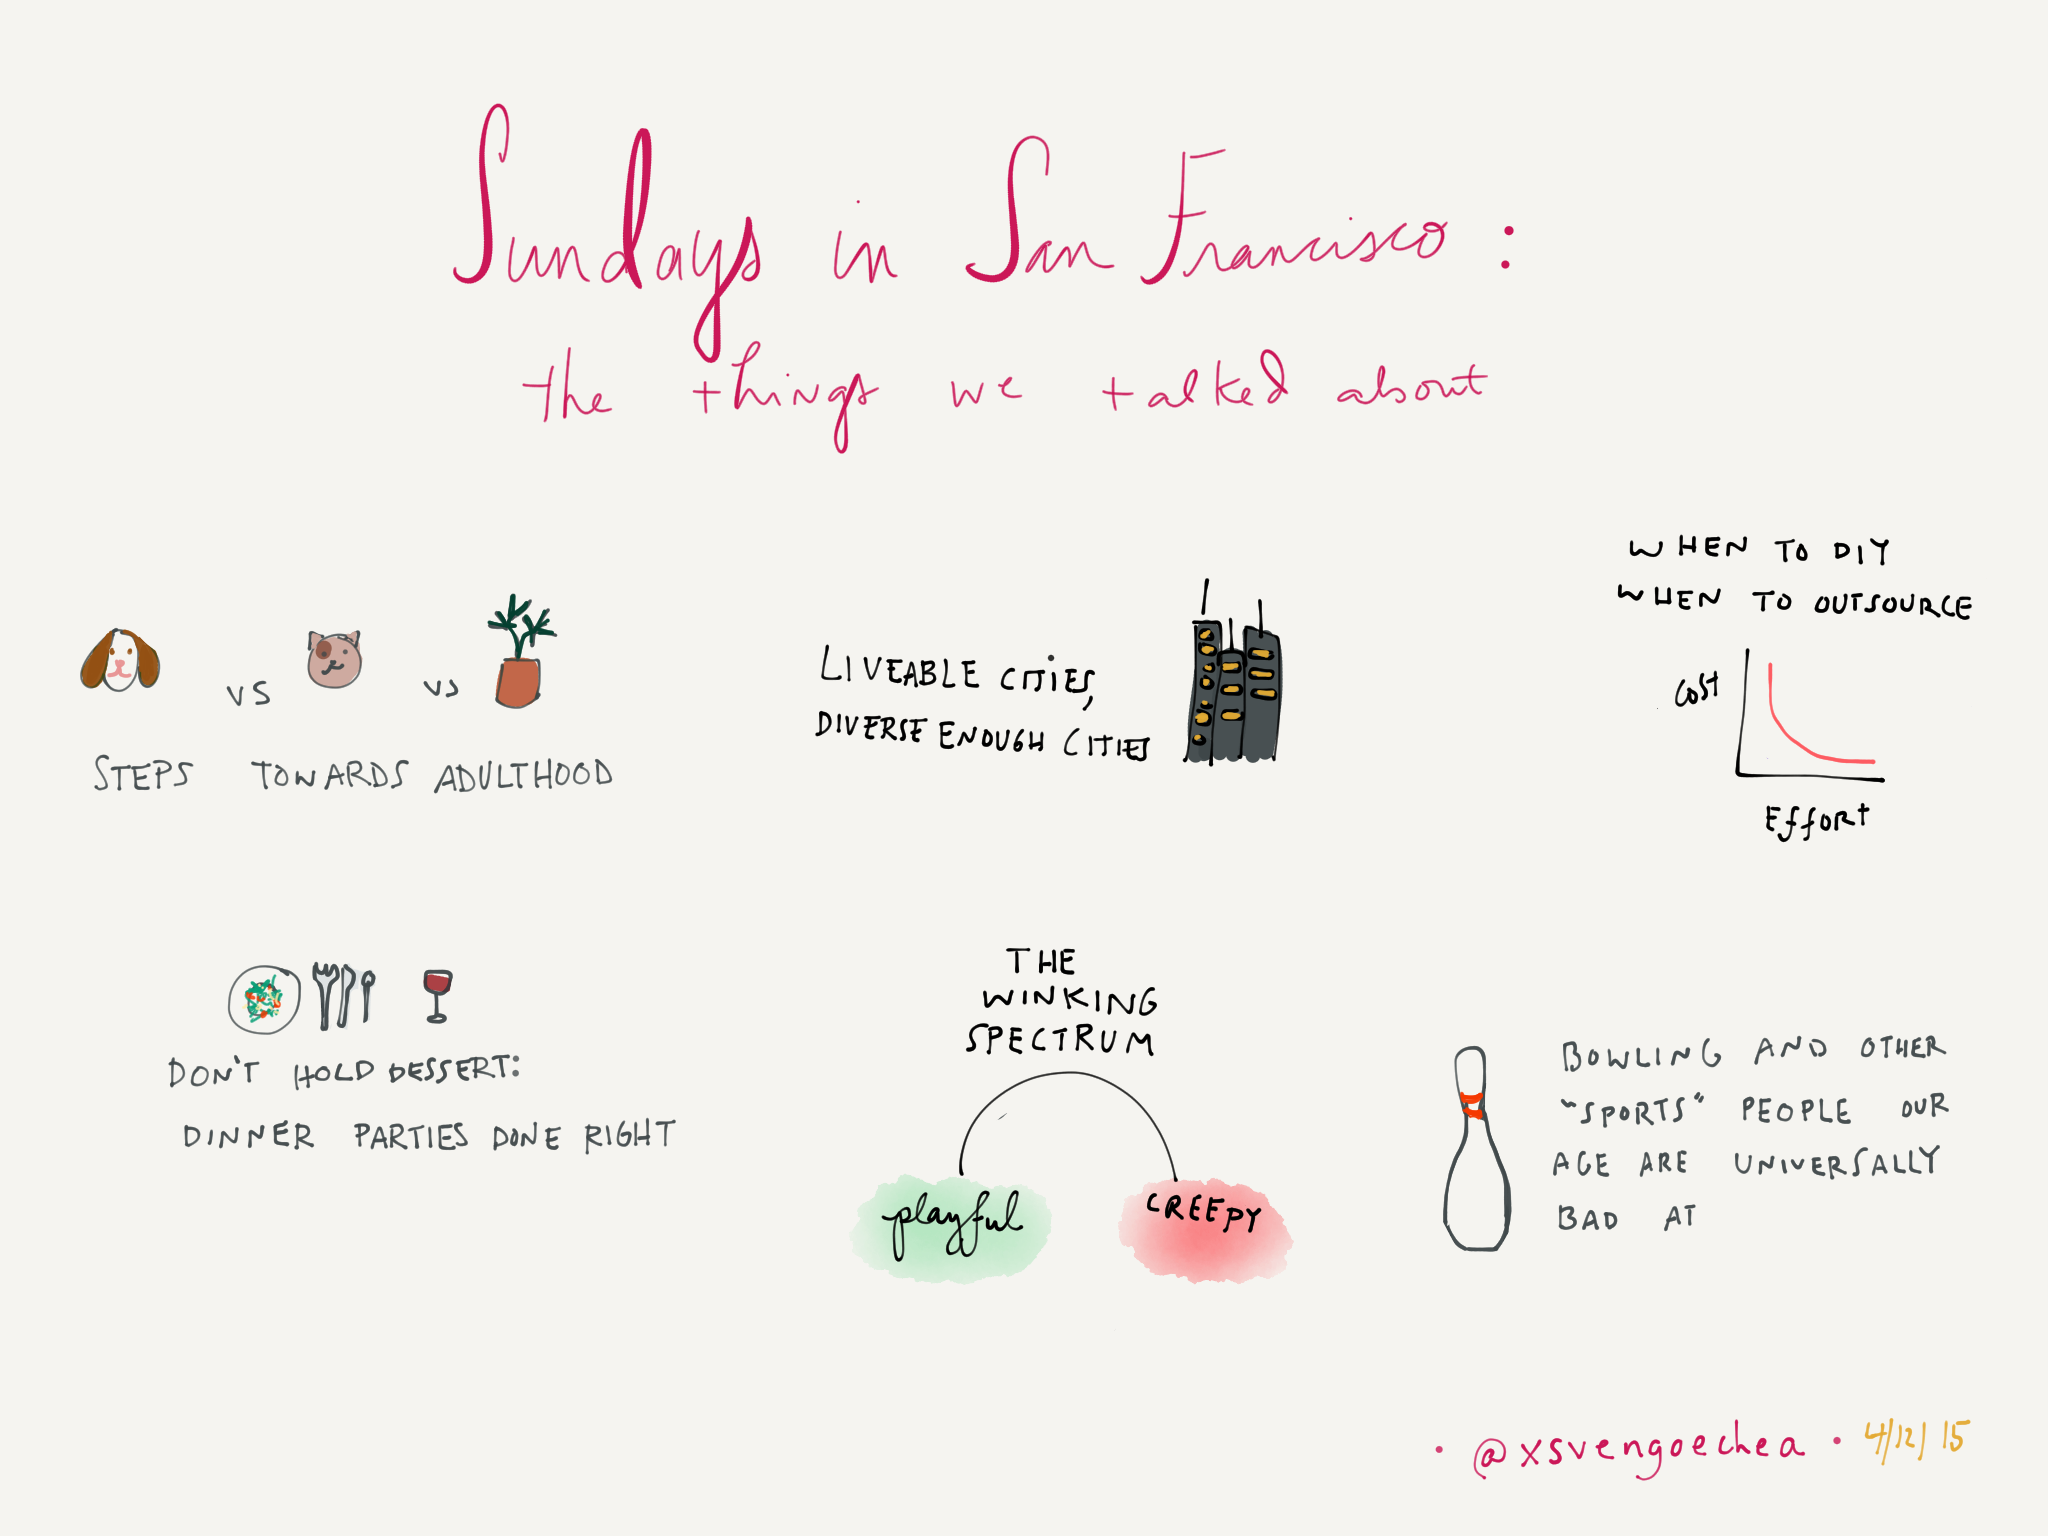 Sundays in San Francisco:
the things we talked about
vs vs
STEPS TOWARDS ADULTHOOD
LIVEABLE CITIES,
DIVERSE ENOUGH CITIES
WHEN TO DIY
WHEN TO OUTSOURCE
COST
EFFORT
DON'T HOLD DESSERT:
DINNER PARTIES DONE RIGHT
THE
WINKING
SPECTRUM
playful
CREEPY
BOWLING AND OTHER
"SPORTS" PEOPLE OUR
AGE ARE UNIVERSALLY
BAD AT
• @xsvengoechea • 4/12/15